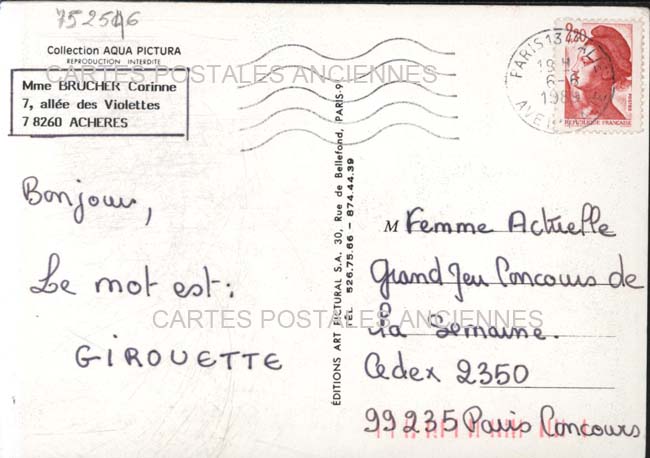 752546
Collection AQUA PICTURA
REPRODUCTION INTERDITE
CARTES POSTALES ANCIENNES
Mme BRUCHER Corinne
7, allée des Violettes
78260 ACHERES
PARIS 13
19H
6-6
198
AVE
2,20
POSTES
REPUBLIQUE FRANÇAISE
Bonjour,
Le mot est :
GIROUETTE
ÉDITIONS ART PICTURAL S.A. 30, Rue de Bellefond, PARIS-9
TÉL. 526.75.66 - 874.44.39
M Femme Actuelle
Grand Jeu Concours de
la Semaine.
Cedex 2350
99235 Paris Concours
CARTES POSTALES ANCIENNES